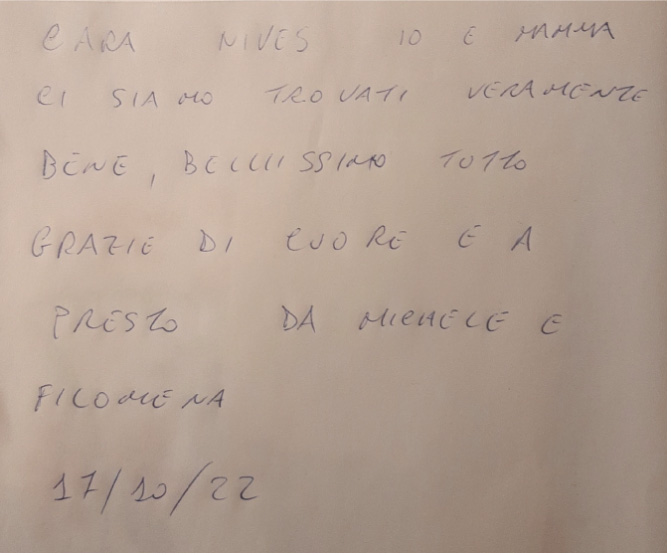 CARA NIVES IO E MAMMA
CI SIAMO TROVATI VERAMENTE
BENE, BELLISSIMO TUTTO
GRAZIE DI CUORE E A
PRESTO DA MICHELE E
FILOMENA
17/10/22